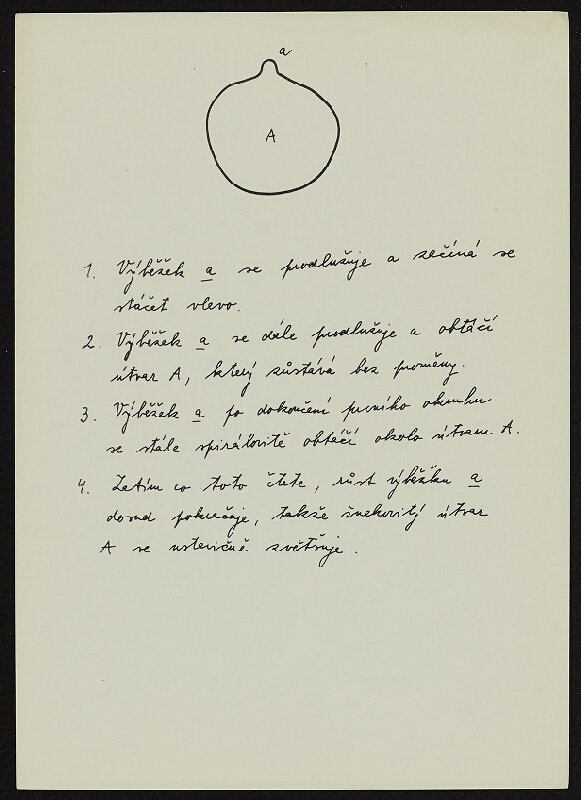 a
A
1. Výběžek a se prodlužuje a začíná se
stáčet vlevo.
2. Výběžek a se dále prodlužuje a obtáčí
útvar A, který zůstává bez proměny.
3. Výběžek a po dokončení prvního okruhu
se stále spirálovitě obtáčí okolo útvaru A.
4. Zatím co toto čtete, růst výběžku a
dosud pokračuje, takže šnekovitý útvar
A se ustavičně zvětšuje.